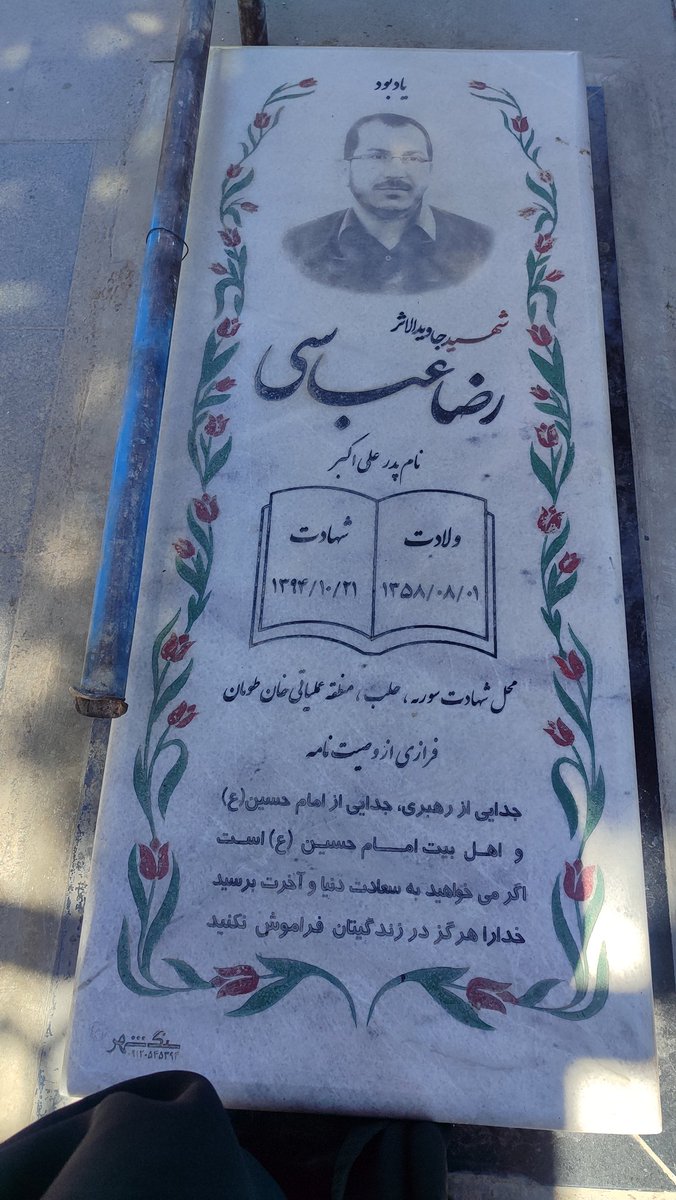 یادبود
شهید جاویدالاثر
رضا عباسی
نام پدر علی اکبر
ولادت
۱۳۵۸/۰۸/۰۱
شهادت
۱۳۹۴/۱۰/۲۱
محل شهادت سوریه ، حلب ، منطقه عملیاتی خان طومان
فرازی از وصیت نامه
جدایی از رهبری، جدایی از امام حسین(ع)
و اهل بیت امام حسین (ع) است
اگر می خواهید به سعادت دنیا و آخرت برسید
خدارا هرگز در زندگیتان فراموش نکنید
سنگ شهر
۰۹۱۲۰۵۴۵۳۹۴